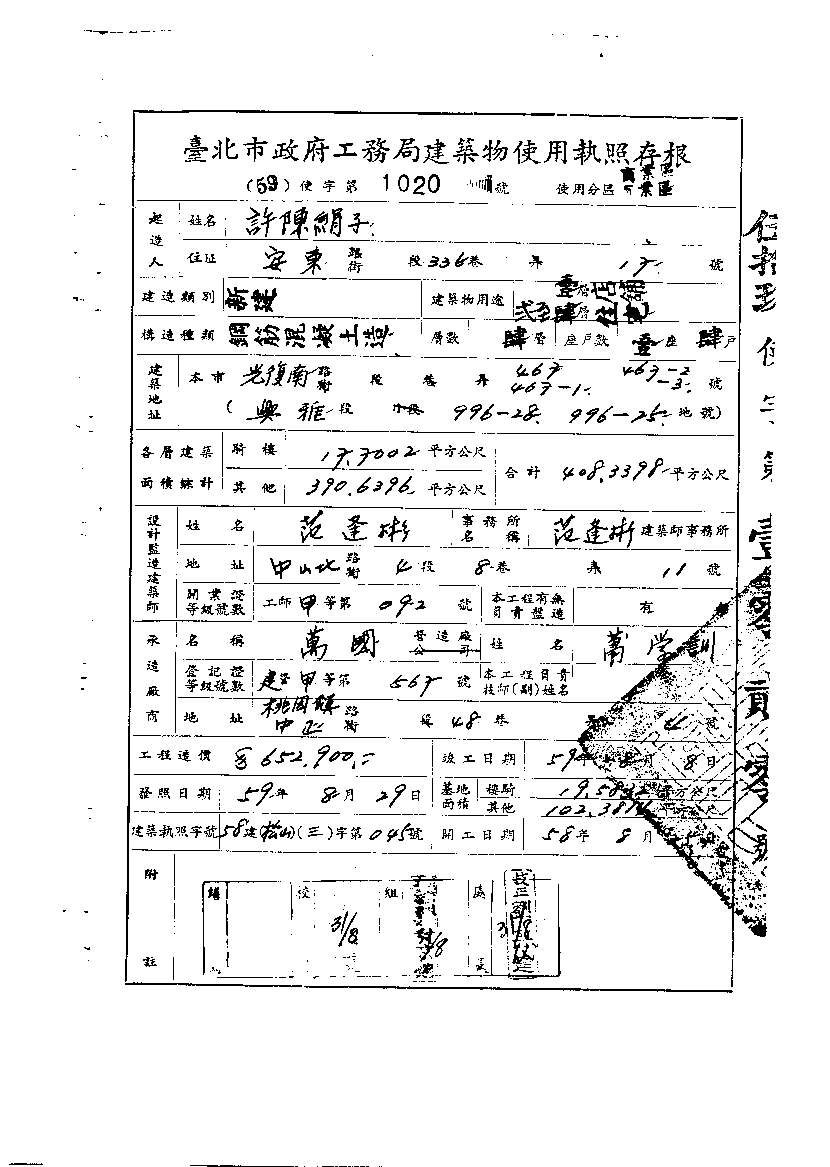 臺北市政府工務局建築物使用執照存根
(59)使字第 1020 號 使用分區 商業區
起造人 姓名 許陳絹子
住址 安東 路街 段 336 巷 弄 17 號
建造類別 新建 建築物用途 壹層店鋪 弍至肆層住宅
構造種類 鋼筋混凝土造 層數 肆層 座戶數 壹座 肆戶
建築地址 本市 光復南 路街 段 巷 弄 467 467-1 467-2 -3 號
(興雅段 小段 996-28 996-25 地號)
各層建築面積綜計 騎樓 17.7002 平方公尺 合計 408.3398 平方公尺
其他 390.6396 平方公尺
設計監造建築師 姓名 范逢彬 事務所名稱 范逢彬 建築師事務所
地址 中山北 路街 4 段 8 巷 弄 11 號
開業證等級號數 工師 甲 等第 092 號 本工程有無負責監造 有
承造廠商 名稱 萬國 營造廠公司 姓名 萬學訓
登記證等級號數 建 甲 等第 567 號 本工程負責技師(副)姓名
地址 桃園鎮 中正 路街 段 48 巷 4 號
工程造價 $652,900.- 竣工日期 59年 8月 8日
發照日期 59年 8月 29日 基地面積 樓騎 19.5832 平方公尺
其他 102.3814 平方公尺
建築執照字號 58建(松山)(三)字第045號 開工日期 58年 8月
附註
繕 校 31/8 組 處
伍拾玖使字第壹零貳零號